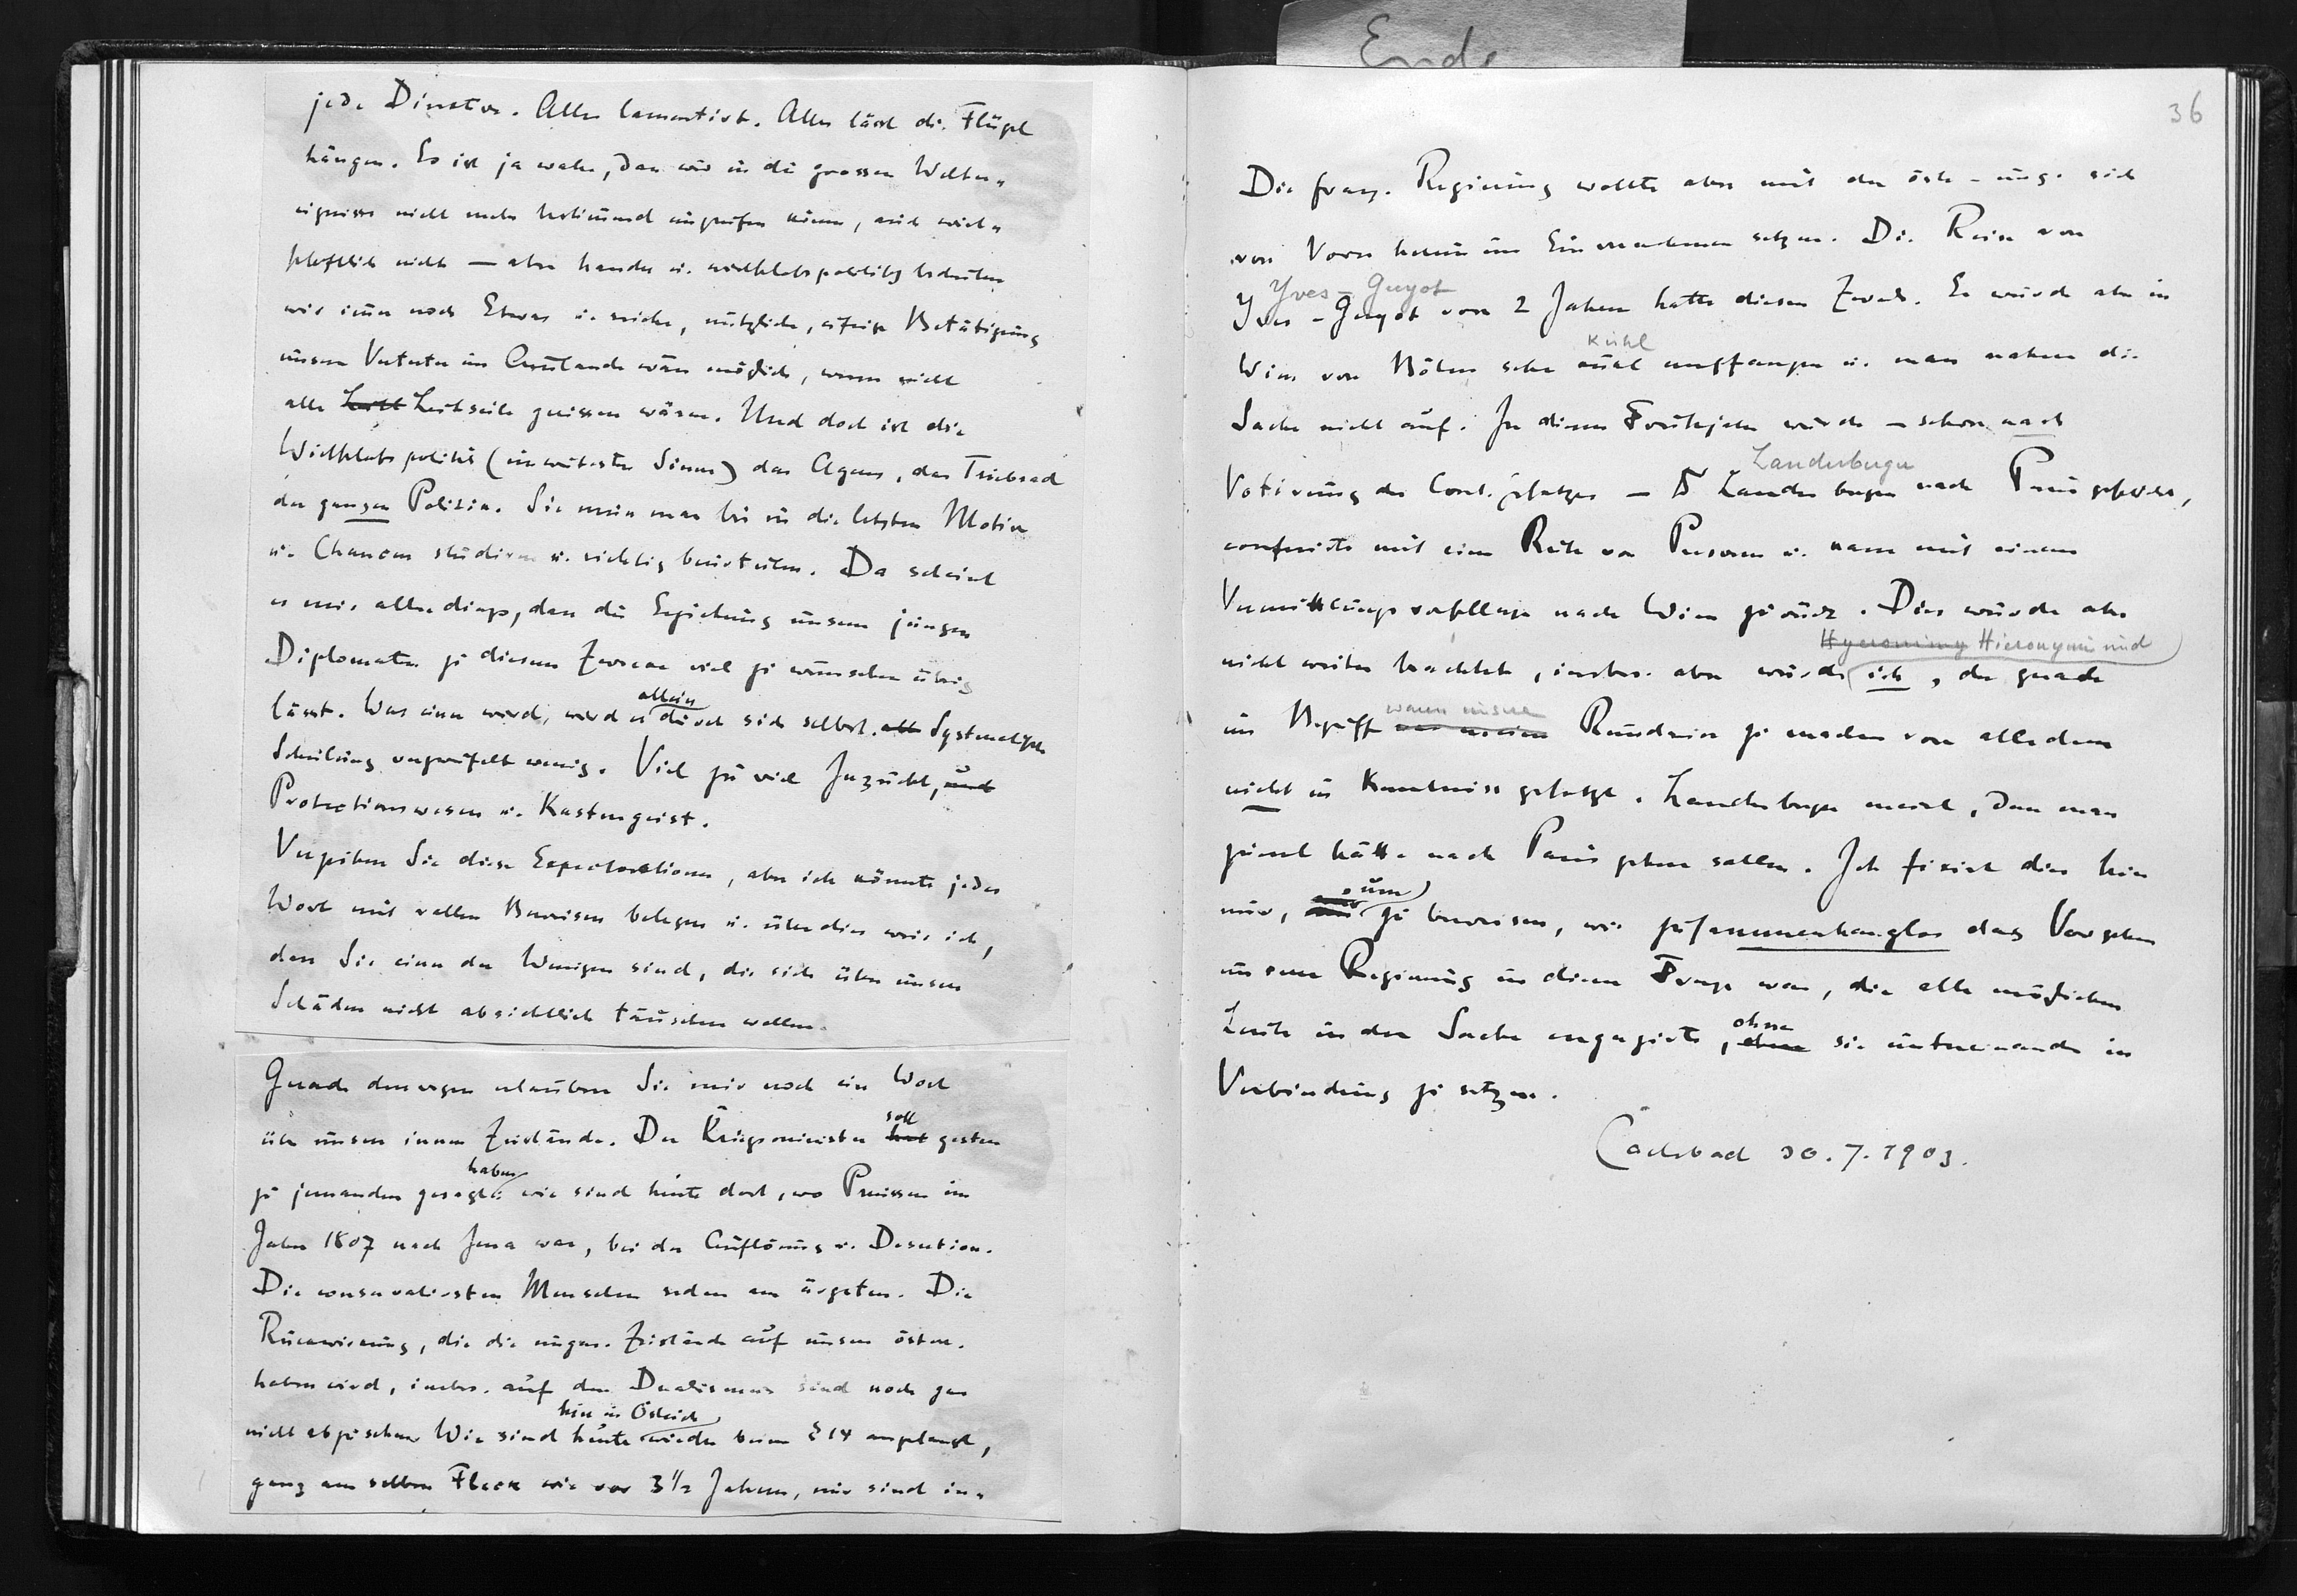 jede Directive. Alles lamentirt. Alles lässt die Flügel
hängen. Es ist ja wahr, dass wir in die grossen Welter-
eignisse nicht mehr bestimmend eingreifen können, auch wirt-
schaftlich nicht — aber handels u. wirthschaftspolitisch bedeuten
wir immer noch Etwas u. reiche, nützliche, eifrige Betätigung
unserer Vertreter im Auslande wäre möglich, wenn nicht
alle Leitseile gerissen wären. Und doch ist die
Wirthschaftspolitik (im weitesten Sinne) das Agens, das Triebrad
der ganzen Politik. Sie muss man bis in die letzten Motive
u. Chancen studiren u. richtig beurteilen. Da scheint
es mir allerdings, dass die Erziehung unserer jungen
Diplomaten zu diesem Zwecke viel zu wünschen übrig
allein
lässt. Was einer wird, wird er durch sich selbst. Systematische
Schulung verzweifelt wenig. Viel zu viel Inzucht, und
Protectionswesen u. Kastengeist.
Verzeihen Sie diese Expectorationen, aber ich könnte jedes
Wort mit vollen Beweisen belegen u. überdies weis ich,
dass Sie einer der Wenigen sind, die sich über unsere
Schäden nicht absichtlich täuschen wollen.
Gerade deswegen erlauben Sie mir noch ein Wort
soll
über unsere innern Zustände. Der Kriegsminister hat gestern
haben
zu jemandem gesagt: wir sind heute dort, wo Preussen im
Jahre 1807 nach Jena war, bei der Auflösung u. Desertion.
Die conservativsten Menschen reden am ärgsten. Die
Rückwirkung, die die ungar. Zustände auf unsere österr.
haben wird, insbes. auf den Dualismus sind noch gar
hier in Österreich
nicht abzusehen. Wir sind heute wieder beim § 14 angelangt,
ganz am selben Fleck wie vor 3 1/2 Jahren, nur sind in-
Ende
36
Die franz. Regierung wollte aber mit der öster-ung. sich
von Vorn herein ins Einvernehmen setzen. Die Reise von
Yves-Guyot
Yves-Guyot vor 2 Jahren hatte diesen Zweck. Er wurde aber in
kühl
Wien von Böhm sehr kühl empfangen u. man nahm die
Sache nicht auf. In diesem Frühjahr wurde — schon nach
Landesberger
Votirung des Cont. gesetzes — Dr Landesberger nach Paris geschickt,
conferirte mit einer Reihe von Personen u. kam mit einem
Vermittlungsvorschlage nach Wien zurück. Dies wurde aber
Hyeronimy Hieronymi und
nicht weiter beachtet, insbes. aber wurde ich, der gerade
wann unsere
im Begriff war meine Rundreise zu machen von alledem
nicht in Kenntniss gesetzt. Landesberger meint, dass man
zuerst hätte nach Paris gehen sollen. Ich fixirt dies hier
um
nur, zu beweisen, wie zusammenhanglos das Vorgehen
unserer Regierung in dieser Frage war, die alle möglichen
ohne
Leute in der Sache engagirte, ohne sie untereinander in
Verbindung zu setzen.
Carlsbad 30.7.1903.